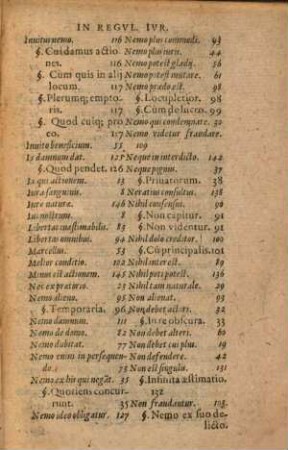 IN REGVL. IVR.
Inuitus nemo. 116
§. Cui damus actio
nes. 116
§. Cum quis in alij
locum. 117
§. Plerumq; empto
ris. 117
§. Quod cuiq; pro
eo. 117
Inuito beneficium. 55
Is damnum dat. 125
§. Quod pendet. 126
Is qui actionem. 13
Iura sanguinis. 8
Iure naturæ. 174
Ius nostrum. 8
Libertas inæstimabilis. 83
Libertas omnibus. 94
Marcellus. 53
Melior conditio. 102
Minus est actionem. 145
Nec ex prætorio. 23
Nemo alieno. 95
§. Temporaria. 96
Nemo damnum. 111
Nemo de domo. 82
Nemo dubitat. 77
Nemo enim in persequen
do.
Nemo ex his qui negāt. 35
§. Quotiens concur-
runt. 35
Nemo ideo obligatur. 127
Nemo plus commodi. 93
Nemo plus iuris. 44
Nemo potest gladij. 56
Nemo potest mutare. 61
Nemo prædo est. 98
§. Locupletior. 98
§. Cum de lucro. 99
Nemo qui condemnare. 30
Nemo videtur fraudare.
109
Neque in interdicto. 142
Neque pignus. 37
§. Priuatorum. 38
Neratius consultus. 138
Nihil consensui. 90
§. Non capitur. 91
§. Non videntur. 91
Nihil dolo creditor. 101
§. Cū principalis. 101
Nihil interest. 89
Nihil peti potest. 136
Nihil tam naturale. 29
Non alienat. 93
Non debet actori. 32
§. In re obscura. 33
Non debet alteri. 60
Non debet cui plus. 17
Non defendere. 42
Non est singulis. 131
§. Infinita æstimatio.
132
Non fraudantur. 103
§. Nemo ex suo de
licto.